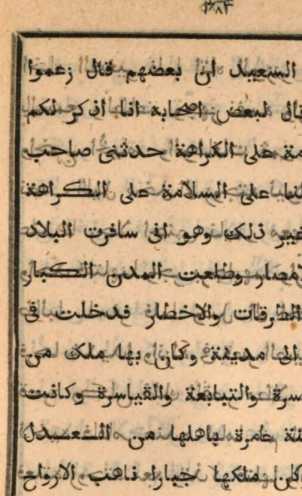 ٣٨٤
السعيد ان بعضهم قال زعموا
قال لبعض اصحابه انا اذكر لكم
على الكراهة حدثنى صاحب
على السلامة على الكراهة
غير ذلك وهو انى سافرت البلاد
وطلعت المدن الكبار
الطرقات والاخطار فدخلت فى
مدينة وكان بها ملك من
والتبابعة والقياصرة وكانت
عامرة باهلها من
ملكها جبارا ذاهب الارواح